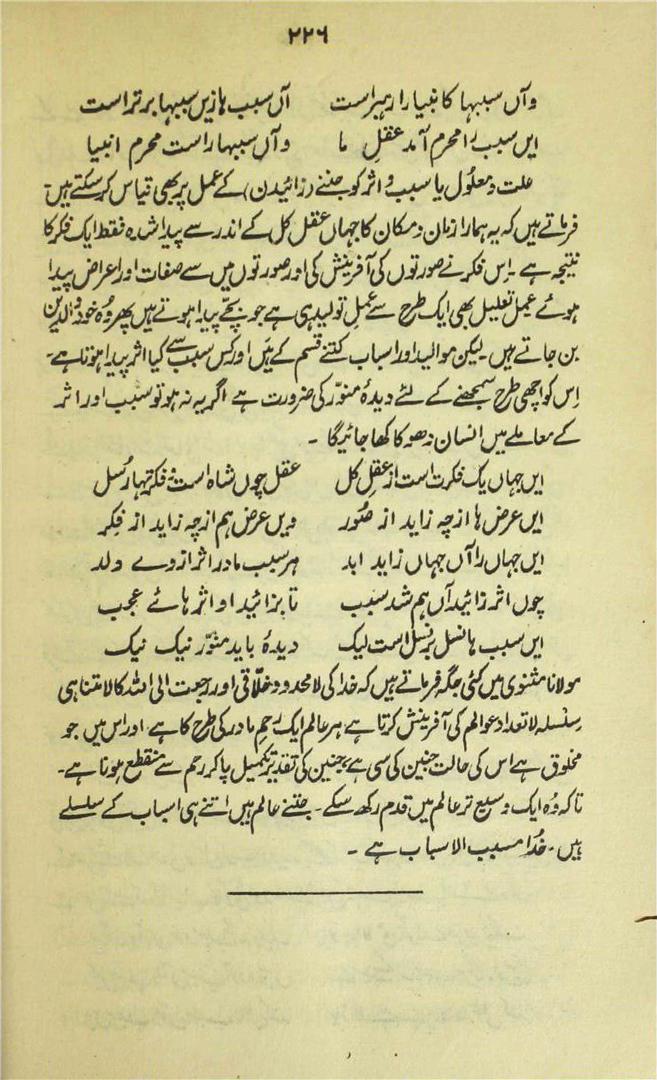 ۲۲۶
وآں سببہا کانبیارا رہبراست آں سبب ہا زیں سببہا برتراست
ایں سبب را محرم آمد عقلِ ما وآں سببہاراست محرم انبیا
علت و معلول یا سبب و اثر کو جننے (زائیدن) کے عمل پر بھی قیاس کرسکتے ہیں۔
فرماتے ہیں کہ یہ ہمارا زمان و مکان کا جہاں عقل کل کے اندر سے پیدا شدہ فقط ایک فکر کا
نتیجہ ہے۔ اِس فکر نے صورتوں کی آفرینش کی اور صورتوں میں سے صفات اور اعراض پیدا
ہوئے عملِ تعلیل بھی ایک طرح سے عملِ تولید ہی ہے جو بچے پیدا ہوتے ہیں پھر وُہ خود والدین
بن جاتے ہیں۔ لیکن موالید اور اسباب کتنے قسم کے ہیں اور کس سبب سے کیا اثر پیدا ہوتا ہے۔
اِس کو اچھی طرح سمجھنے کے لئے دیدۂ منوّر کی ضرورت ہے اگر یہ نہ ہو تو سبب اور اثر
کے معاملے میں انسان دھوکا کھا جائیگا ۔
ایں جہاں یک فکرت است از عقلِ کل عقل چوں شاہ است و فکرتہا رُسل
ایں عرض ہا از چہ زاید از صُوَر ویں عرض ہم از چہ زاید از فِکر
ایں جہاں را آں جہاں زاید ابد ہر سبب مادر اثر از وے ولد
چوں اثر زائید آں ہم شد سبب تا بزائید او اثر ہائے عجب
ایں سبب ہا نسل بر نسل است لیک دیدۂ باید منوّر نیک نیک
مولانا مثنوی میں کئی جگہ فرماتے ہیں کہ خدا کی لامحدود خلّاقی اور رجعت الی اللہ کا لامتناہی
سِلسلہ لاتعداد عوالم کی آفرینش کرتا ہے ہر عالم ایک رحمِ مادر کی طرح کا ہے اور اس میں جو
مخلوق ہے اس کی حالت جنین کی سی ہے، جنین کی تقدیر تکمیل پاکر رحم سے منقطع ہونا ہے۔
تاکہ وُہ ایک وسیع تر عالم میں قدم رکھ سکے۔ جتنے عالم ہیں اتنے ہی اسباب کے سلسلے
ہیں۔ خُدا مسبب الاسباب ہے ۔